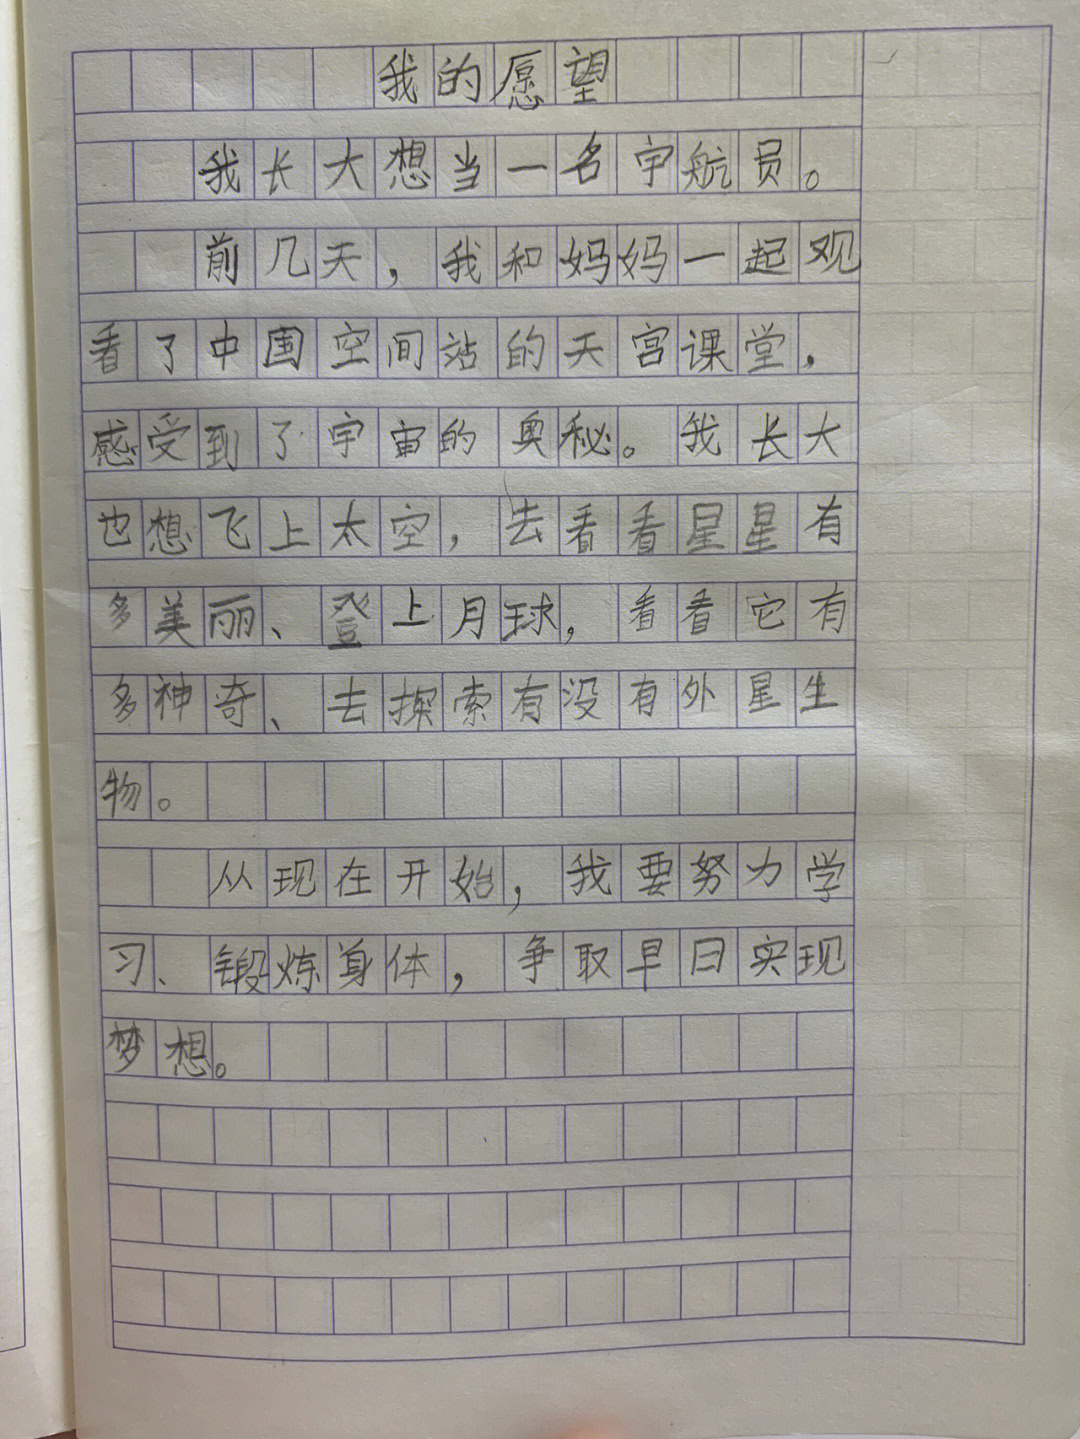 我的愿望
我长大想当一名宇航员。
前几天，我和妈妈一起观
看了中国空间站的天宫课堂，
感受到了宇宙的奥秘。我长大
也想飞上太空，去看看星星有
多美丽、登上月球，看看它有
多神奇、去探索有没有外星生
物。
从现在开始，我要努力学
习、锻炼身体，争取早日实现
梦想。